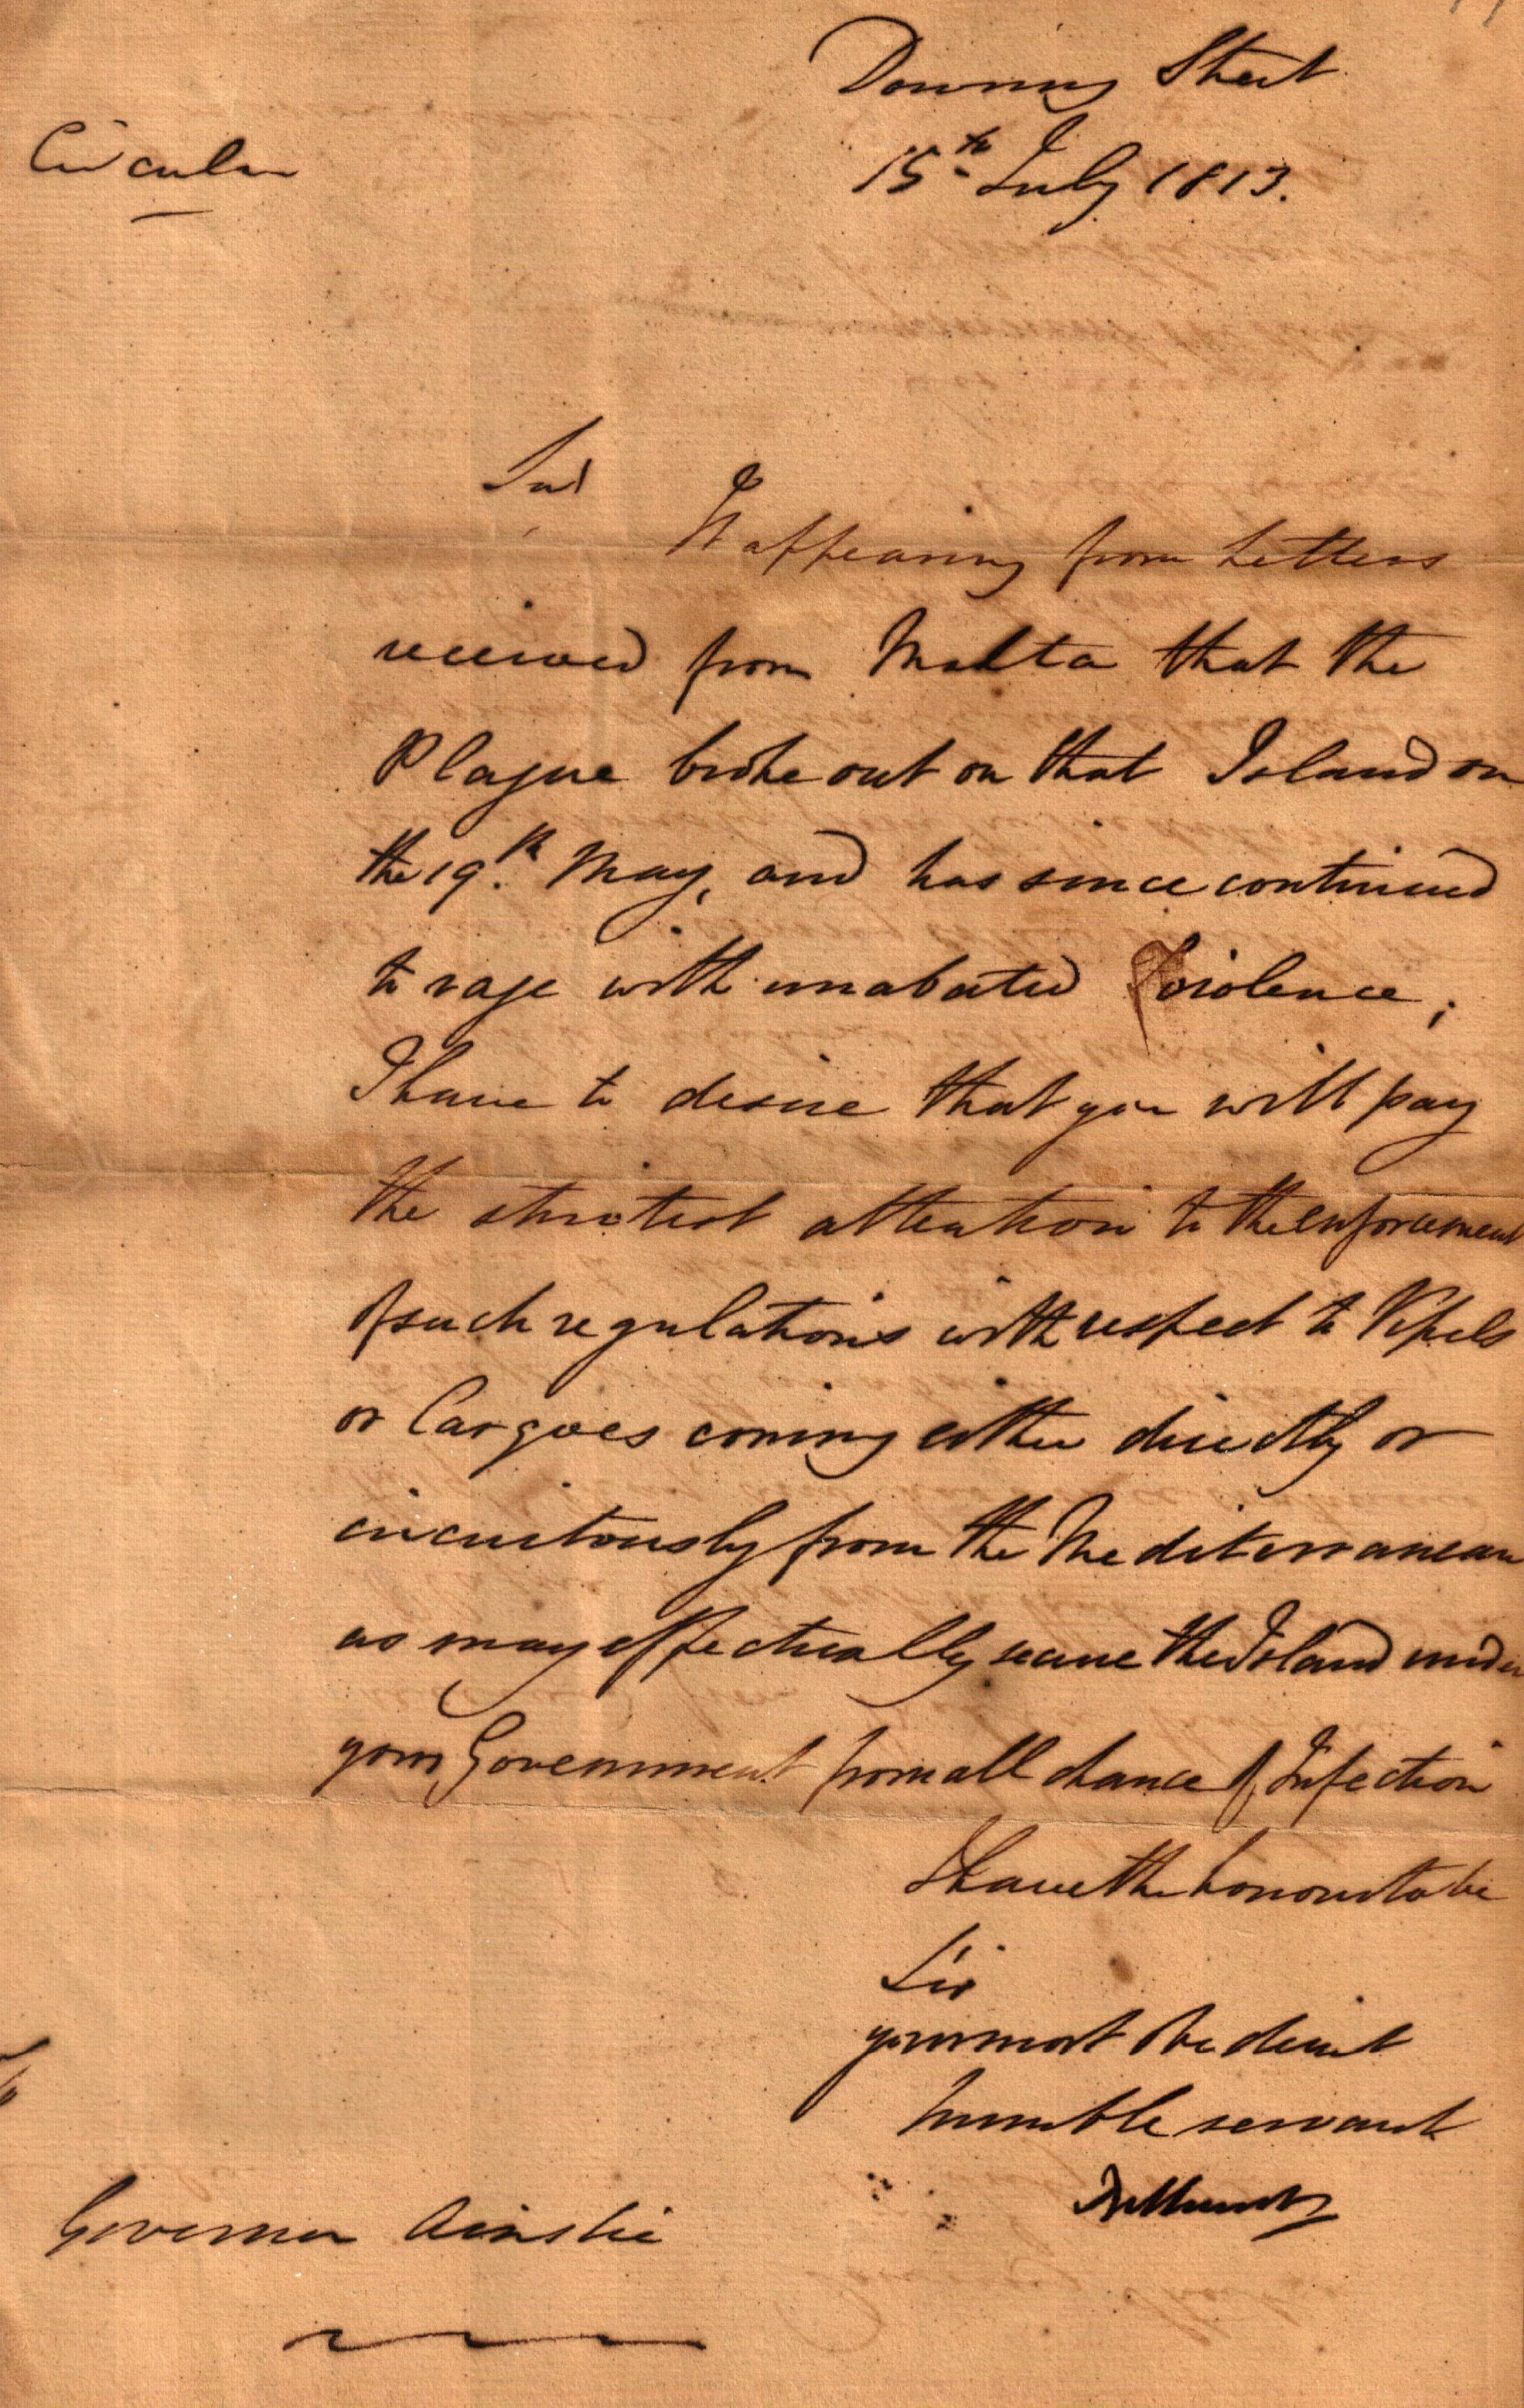 Downing Street
15th July 1813.
Circular
Sir
It appearing from Letters
received from Malta that the
Plague broke out on that Island on
the 19th. May, and has since continued
to rage with unabated violence;
I have to desire that you will pay
the strictest attention to the enforcement
of such regulations with respect to Vessels
or Cargoes coming either directly or
circuitously from the Mediterranean
as may effectually secure the Island under
your Government from all chance of Infection
I have the honour to be
Sir
your most obedient
humble servant
Bathurst
Governor Ainslie